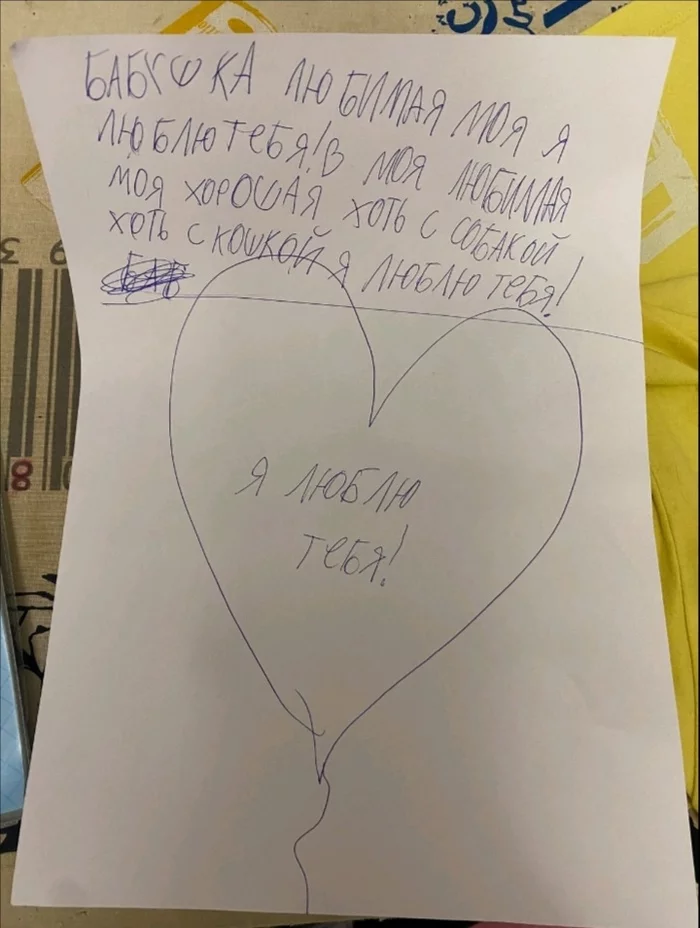 БАБУШКА ЛЮБИМАЯ МОЯ Я
ЛЮБЛЮ ТЕБЯ! В МОЯ ЛЮБИМАЯ
МОЯ ХОРОШАЯ ХОТЬ С СОБАКОЙ
ХОТЬ С КОШКОЙ Я ЛЮБЛЮ ТЕБЯ!
Я ЛЮБЛЮ
ТЕБЯ!